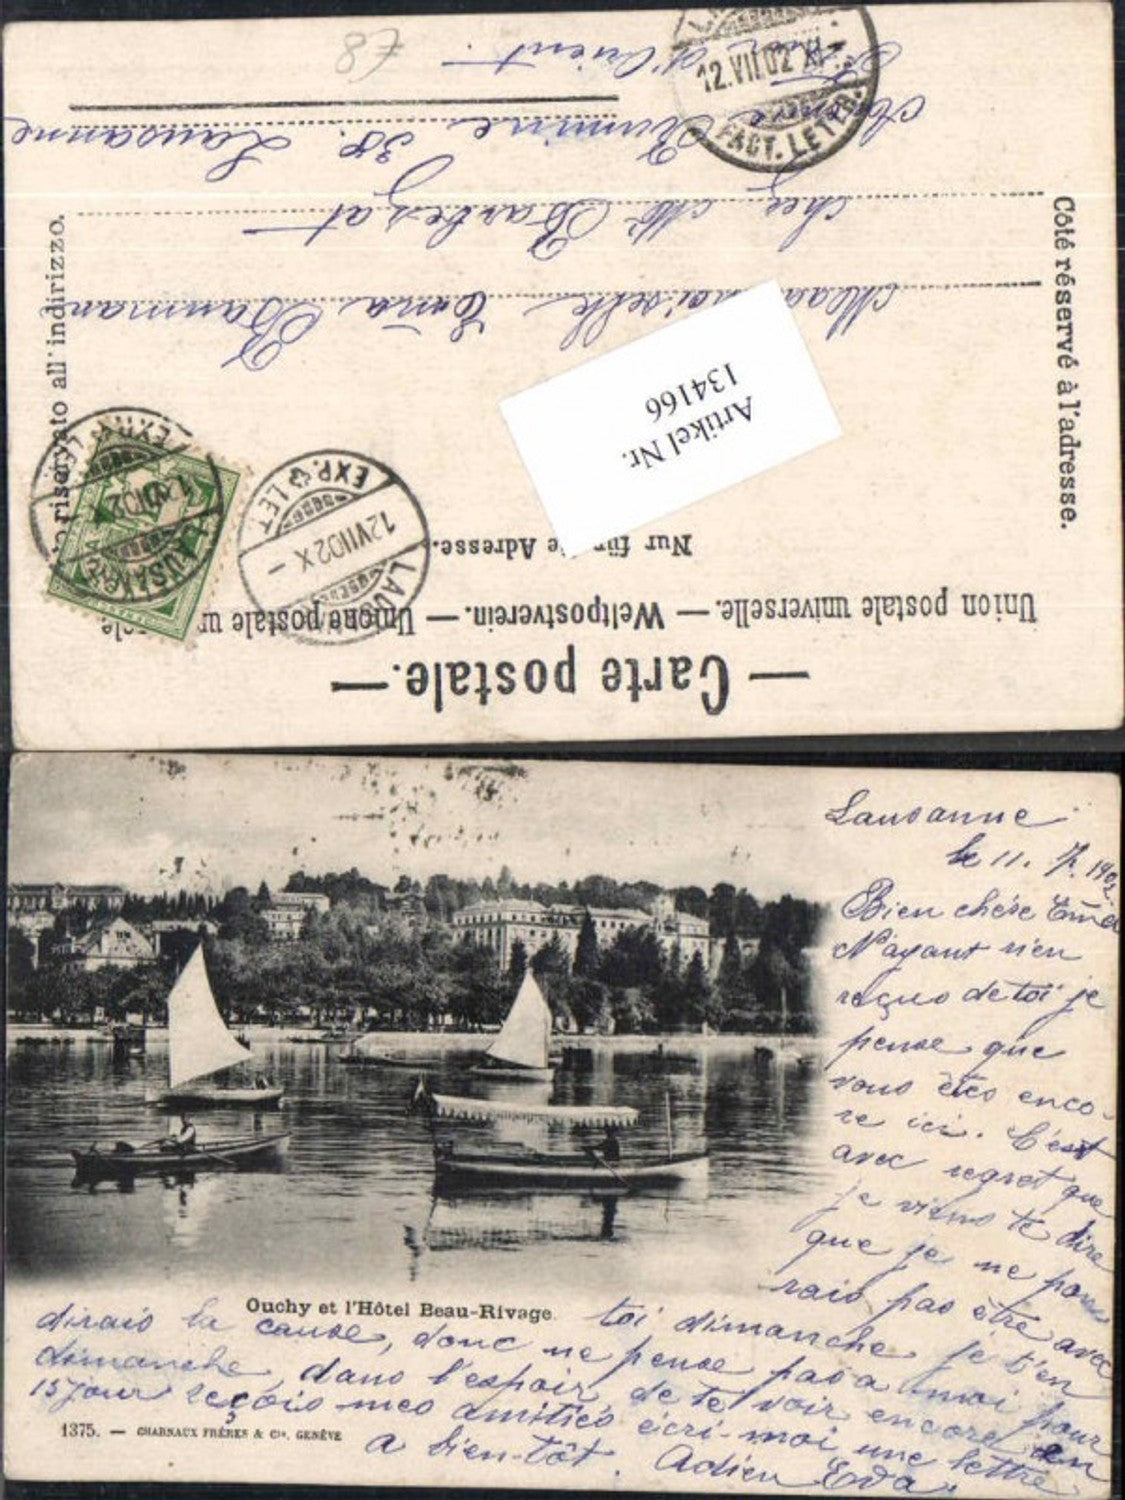 Carte postale.
Union postale universelle. — Weltpostverein. — Unione postale
Nur für die Adresse.
Côté réservé à l'adresse.
riservato all'indirizzo.
Artikel Nr.
134166
LAUSANNE
12 VII 02 X
EXP. LET
LAU
12 VII 02 X —
EXP. LET
Mademoiselle Emã Bauman
chez Mr Barbezat
Avenue Rumine 38. Lausanne
d'Orient.
12.VII.02 XI
FACT. LETTR.
€8
Lausanne
le 11. 7. 1902
Bien chère Emã
N'ayant rien
reçus de toi je
pense que
vous êtes enco-
re ici. C'est
avec regret que
je viens te dire
que je ne pour
rais pas être avec
toi dimanche je t'en
dirais la cause, donc ne pense pas a moi pour
dimanche, dans l'espoir de te voir encore en
15 jour reçois mes amitiés écri-moi une lettre
a bien-tôt. Adieu Eva.
Ouchy et l'Hôtel Beau-Rivage
1375. — CHARNAUX FRÈRES & Cie, GENÈVE